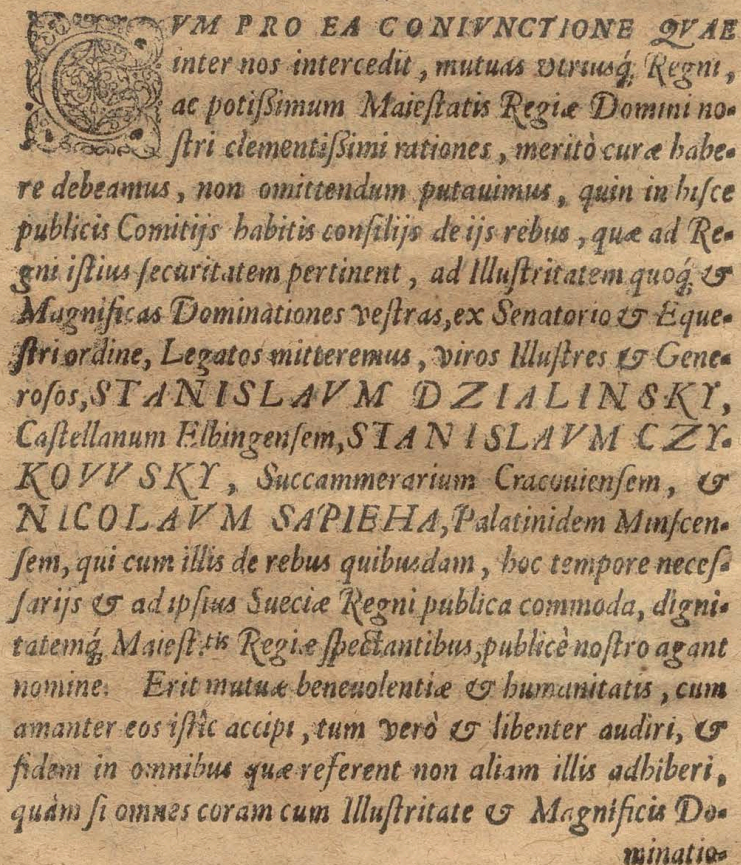 CVM PRO EA CONIVNCTIONE QVAE
inter nos intercedit, mutuas vtriusq́; Regni,
ac potißimum Maieſtatis Regiæ Domini no-
ſtri clementißimi rationes, meritò curæ habe-
re debeamus, non omittendum putauimus, quin in hiſce
publicis Comitijs habitis conſilijs de ijs rebus, quæ ad Re-
gni iſtius ſecuritatem pertinent, ad Illuſtritatem quoq́; &
Magnificas Dominationes veſtras, ex Senatorio & Eque-
ſtri ordine, Legatos mitteremus, viros Illuſtres & Gene-
roſos, STANISLAVM DZIALINSKY,
Caſtellanum Elbingenſem, STANISLAVM CZY-
KOVVSKY, Succammerarium Cracouienſem, &
NICOLAVM SAPIEHA, Palatinidem Minſcen-
ſem, qui cum illis de rebus quibusdam, hoc tempore neceſ-
ſarijs & ad ipſius Sueciæ Regni publica commoda, digni-
tatemq́; Maieſt.tis Regiæ ſpectantibus, publicè noſtro agant
nomine. Erit mutuæ beneuolentiæ & humanitatis, cum
amanter eos iſtîc accipi, tum verò & libenter audiri, &
fidem in omnibus quæ referent non aliam illis adhiberi,
quàm ſi omnes coram cum Illuſtritate & Magnificis Do-
minatio-